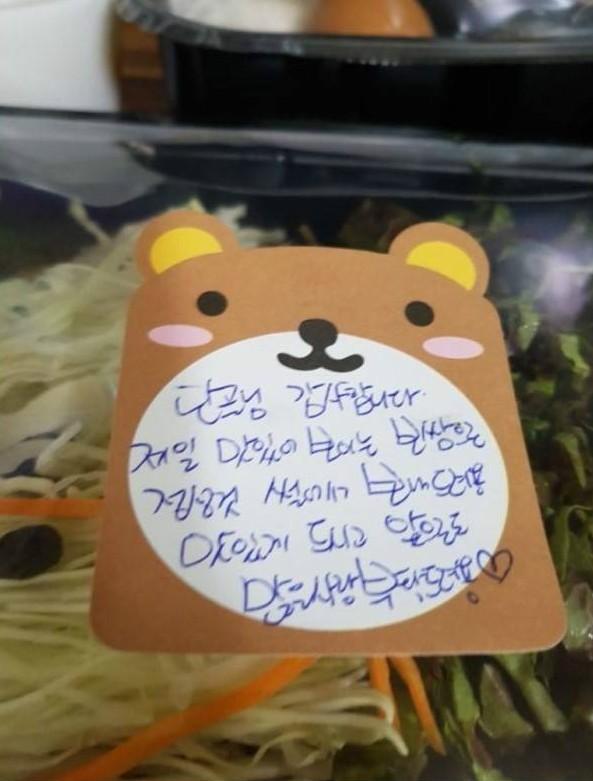 단골님 감사합니다.
제일 맛있어 보이는 부분으로
정성껏 썰어서 보내드려용
맛있게 드시고 앞으로도
많은사랑 부탁드려요!♡